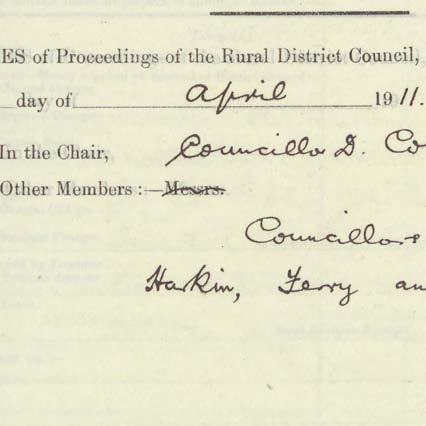 ES of Proceedings of the Rural District Council,
day of April 1911.
In the Chair, Councillor D. Co
Other Members :—Messrs.
Councillors
Harkin, Ferry an